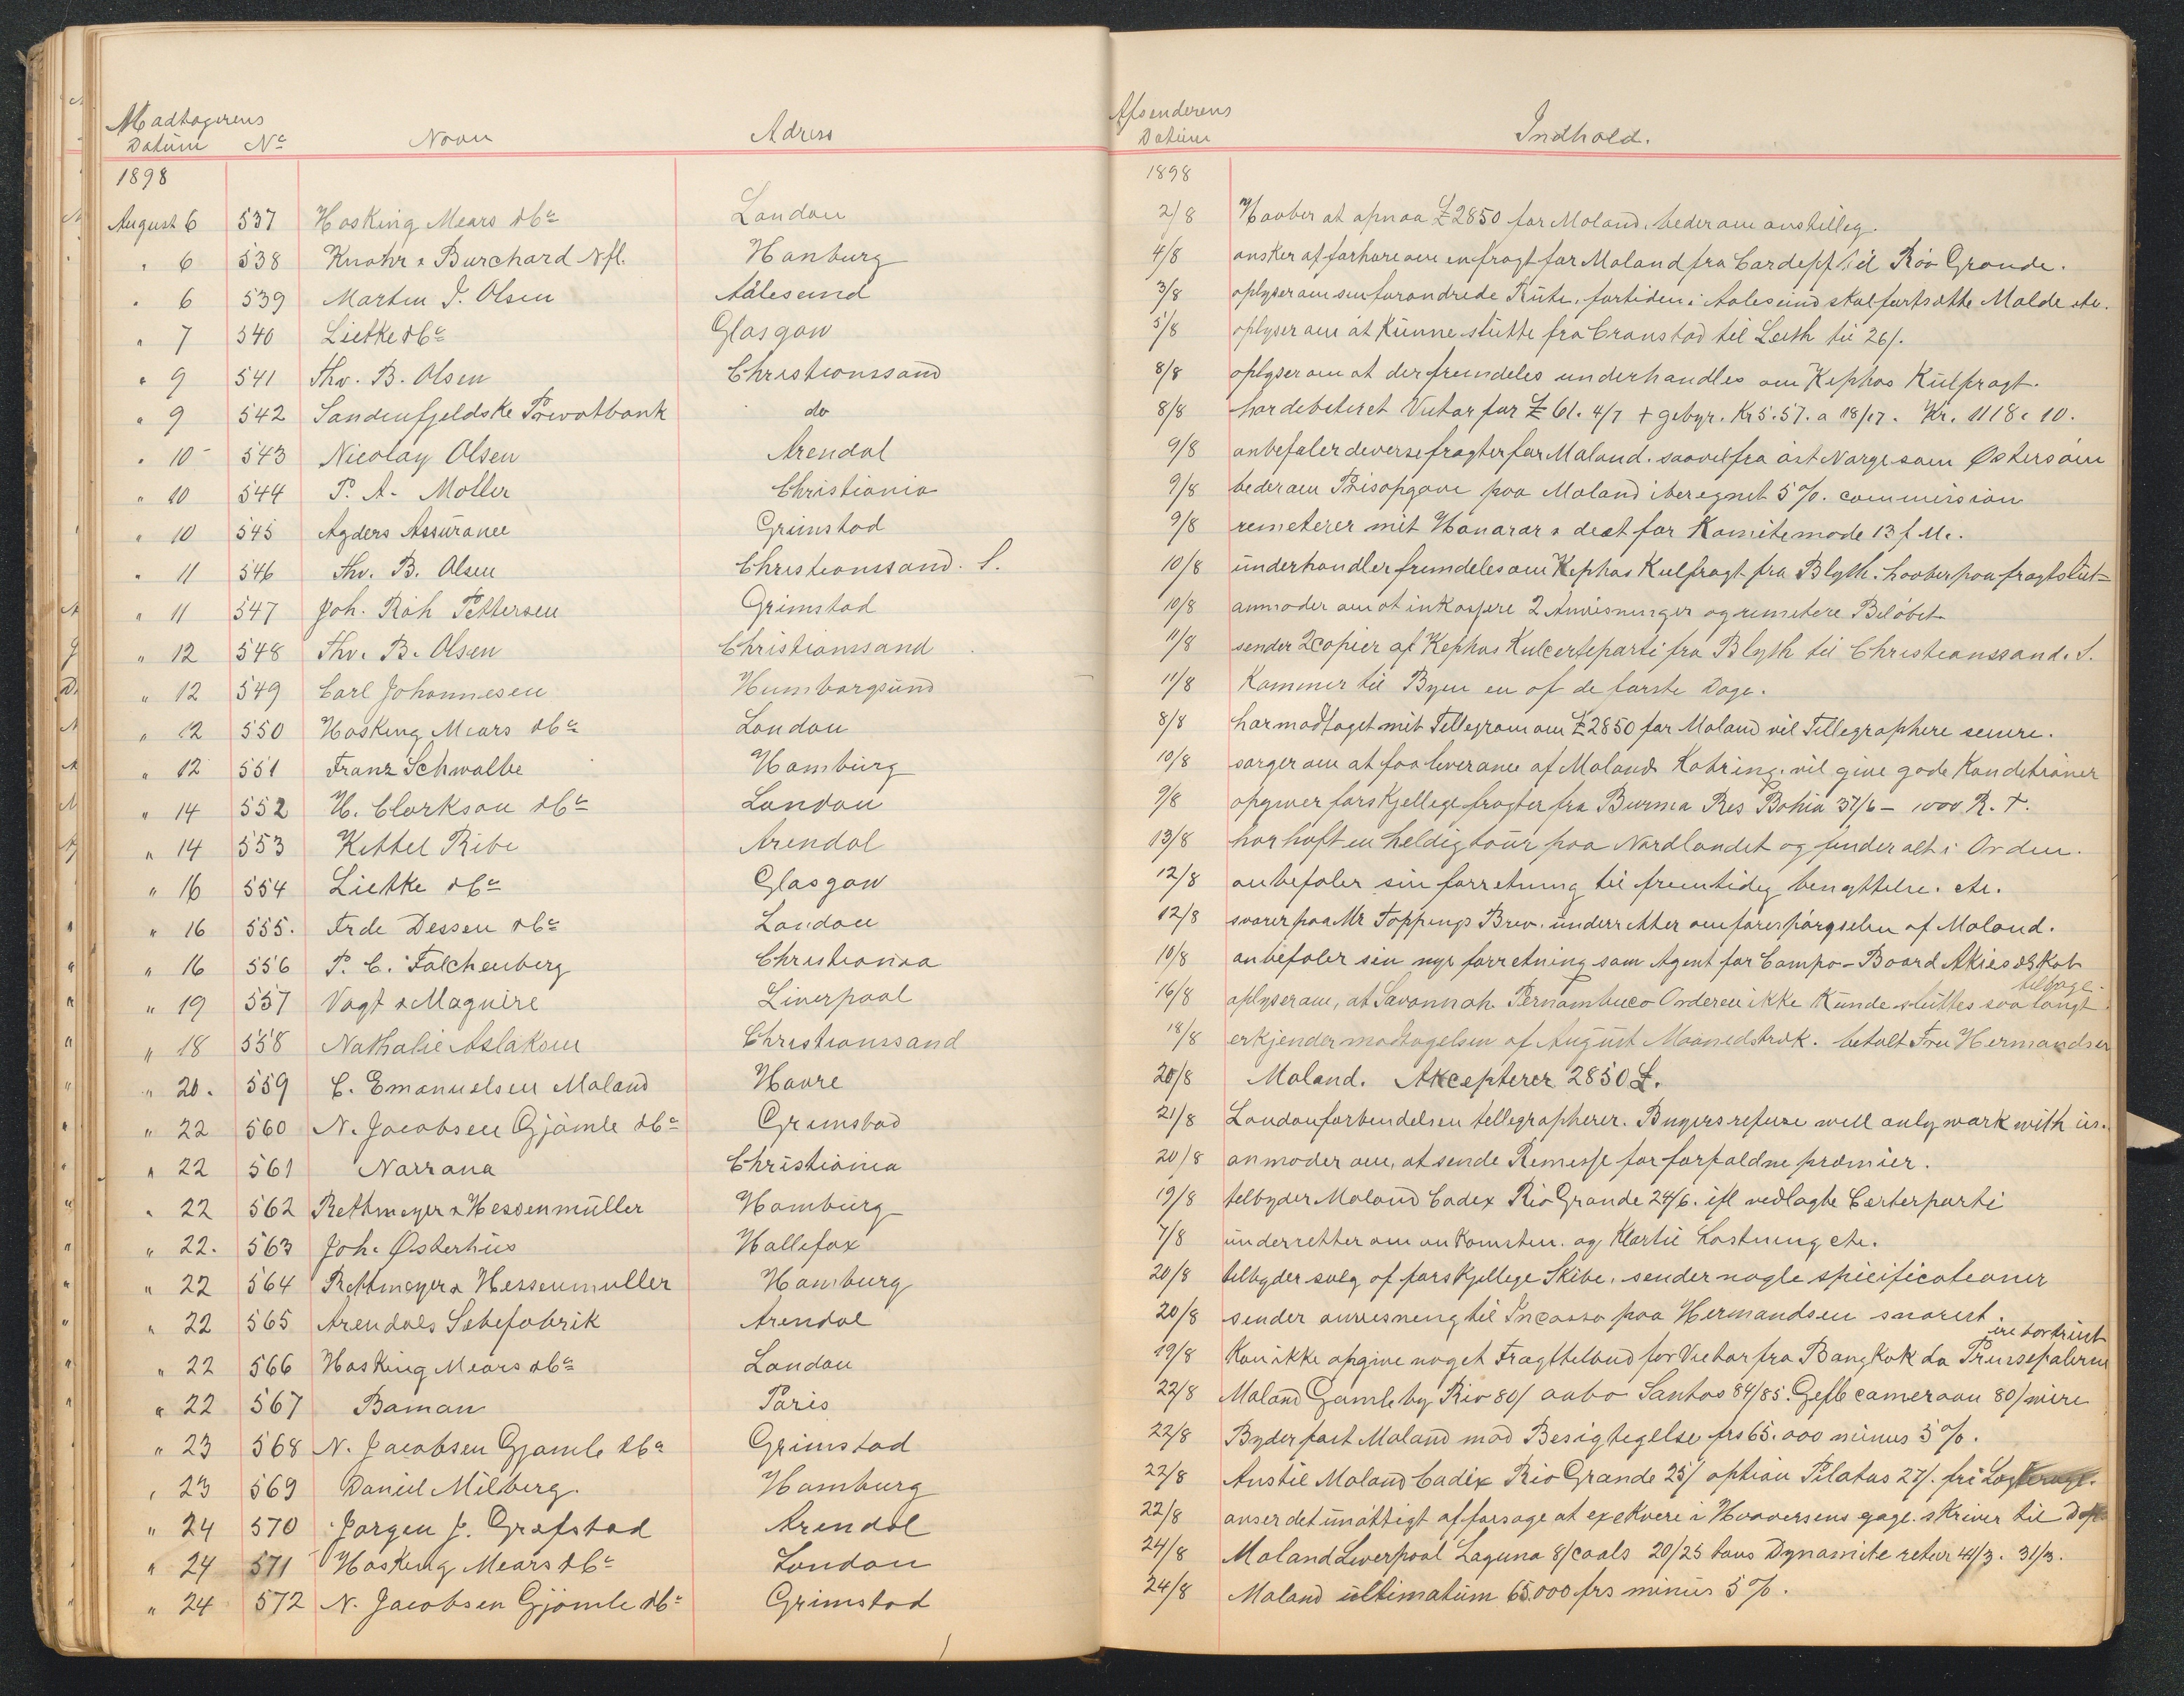 Modtagerens Datum No Navn Adress Afsenderens Datum Indhold.
1898 1898
August 6 537 Hosking Mears & Co London 2/8 Haaber at opnaa £2850 for Moland. beder om anstilling.
" 6 538 Knohr & Burchard Nfl. Hamburg 4/8 onsker at forhøre om en fragt for Moland fra Cardiff til Rio Grande.
" 6 539 Martin J. Olsen Aalesund 3/8 oplyser om sin forandrede Rute, fortiden i Aalesund skal fortsætte Molde etc.
" 7 540 Lietke & Co Glasgow 5/8 oplyser om at kunne slutte fra Cronstad til Leith til 26/.
" 9 541 Thv. B. Olsen Christianssand 8/8 oplyser om at der fremdeles underhandles om Kephas Kulfragt.
" 9 542 Søndenfjeldske Privatbank do 8/8 har debiteret Victor for £ 61. 4/7 + gebyr. Kr 5.57. a 18/17. Kr. 1118.10.
" 10 543 Nicolay Olsen Arendal 9/8 anbefaler deverse fragter for Moland. saavel fra øst Norge som Østersøen
" 10 544 P. A. Møller Christiania 9/8 beder om Prisopgave paa Moland iberegnet 5%. commission
" 10 545 Agders Assurance Grimstad 9/8 remeterer mit Honorar & deet for Komitemøde 13 f. M.
" 11 546 Thv. B. Olsen Christianssand. S. 10/8 underhandler fremdeles om Kephas Kulfragt fra Blyth. haaber paa fragtslut=
" 11 547 Joh. Røh Pettersen Grimstad 10/8 anmoder om at inkassere 2 Anvisninger og remetere Beløbet
" 12 548 Thv. B. Olsen Christianssand 11/8 sender 2 copier af Kephas Kulcerteparti fra Blyth til Christianssand. S.
" 12 549 Carl Johannesen Humborgsund 11/8 Kommer til Byen en af de første Dage.
" 12 550 Hosking Mears & Co London 8/8 har modtaget mit Tellegram om £2850 for Moland vil Tellegraphere senere.
" 12 551 Franz Schwalbe Hamburg 10/8 sørger om at faa leverance af Molands Kobring. vil give gode Konditioner
" 14 552 H. Clarkson & Co London 9/8 opgiver forskjellige fragter fra Burma Res Bahia 37/6 - 1000 R. T.
" 14 553 Kettel Ribe Arendal 13/8 har haft en heldig tour paa Nordlandet og finder alt i Orden.
" 16 554 Lietke & Co Glasgow 12/8 anbefaler sin forretning til fremtidig benyttelse. etc.
" 16 555. Frde Dessen & Co London 12/8 svarer paa Mr Toppings Brev. underretter om forespørgselen af Moland.
" 16 556 P. C. Falchenberg Christiania 10/8 anbefaler sin nye forretning som Agent for Campo-Board Akieselskab
" 19 557 Vogt & Maguire Liverpool 16/8 oplyser om, at Savannah Pernambuco Orderen ikke kunde sluttes saa langt tilbage.
" 18 558 Nathalie Aslaksen Christianssand 18/8 erkjender modtagelsen af August Maanedstræk. betalt Fru Hermandsen
" 20. 559 C. Emanuelsen Moland Havre 20/8 Moland. Akcepterer 2850 £.
" 22 560 N. Jacobsen Gjømle & Co Grimstad 21/8 Londonforbindelsen tellegrapherer. Buyers refuse will only work with us.
" 22 561 Norrøna Christiania 20/8 anmoder om, at sende Remesse for forfaldne præmier.
" 22 562 Rettmeyer & Hessenmüller Hamburg 19/8 tilbyder Moland Cadix Rio Grande 24/6. ifl vedlagte Certerparti
" 22. 563 Joh. Østerhus Hallefax 7/8 underretter om ankomsten. og Klartil Lastning etc.
" 22 564 Rettmeyer & Hessenmuller Hamburg 20/8 tilbyder salg af forskjellige Skibe. sender nogle spicificationer
" 22 565 Arendals Sæbefabrik Arendal 20/8 sender anvisning til Incasso paa Hermandsen snarest.
" 22 566 Hosking Mears & Co London 19/8 Kan ikke opgive noget Fragttilbud for Victor fra Bangkok da Prinsepalerne ere bortreist
" 22 567 Baman Paris 22/8 Moland Gamleby Rio 80/ aabo Santos 84/85. Gefle cameroon 80/ mere
" 23 568 N. Jacobsen Gjømle & Co Grimstad 22/8 Byder fast Moland mod Besigtegelse frs 65.000 minus 5%.
" 23 569 Daniel Milberg. Hamburg 22/8 Anstil Moland Cadix Rio Grande 25/ option Pilatus 27/. fri
" 24 570 Jørgen J. Grefstad Arendal 22/8 anser det unøttigt at forsøge at exekvere i Haaversens gage. skriver til
" 24 571 Hosking Mears & Co London 24/8 Moland Liverpool Laguna 8/ coals 20/25 tons Dynamite retur 41/3. 31/3.
" 24 572 N. Jacobsen Gjømle & Co Grimstad 24/8 Moland ultimatum 65.000 frs minus 5%.